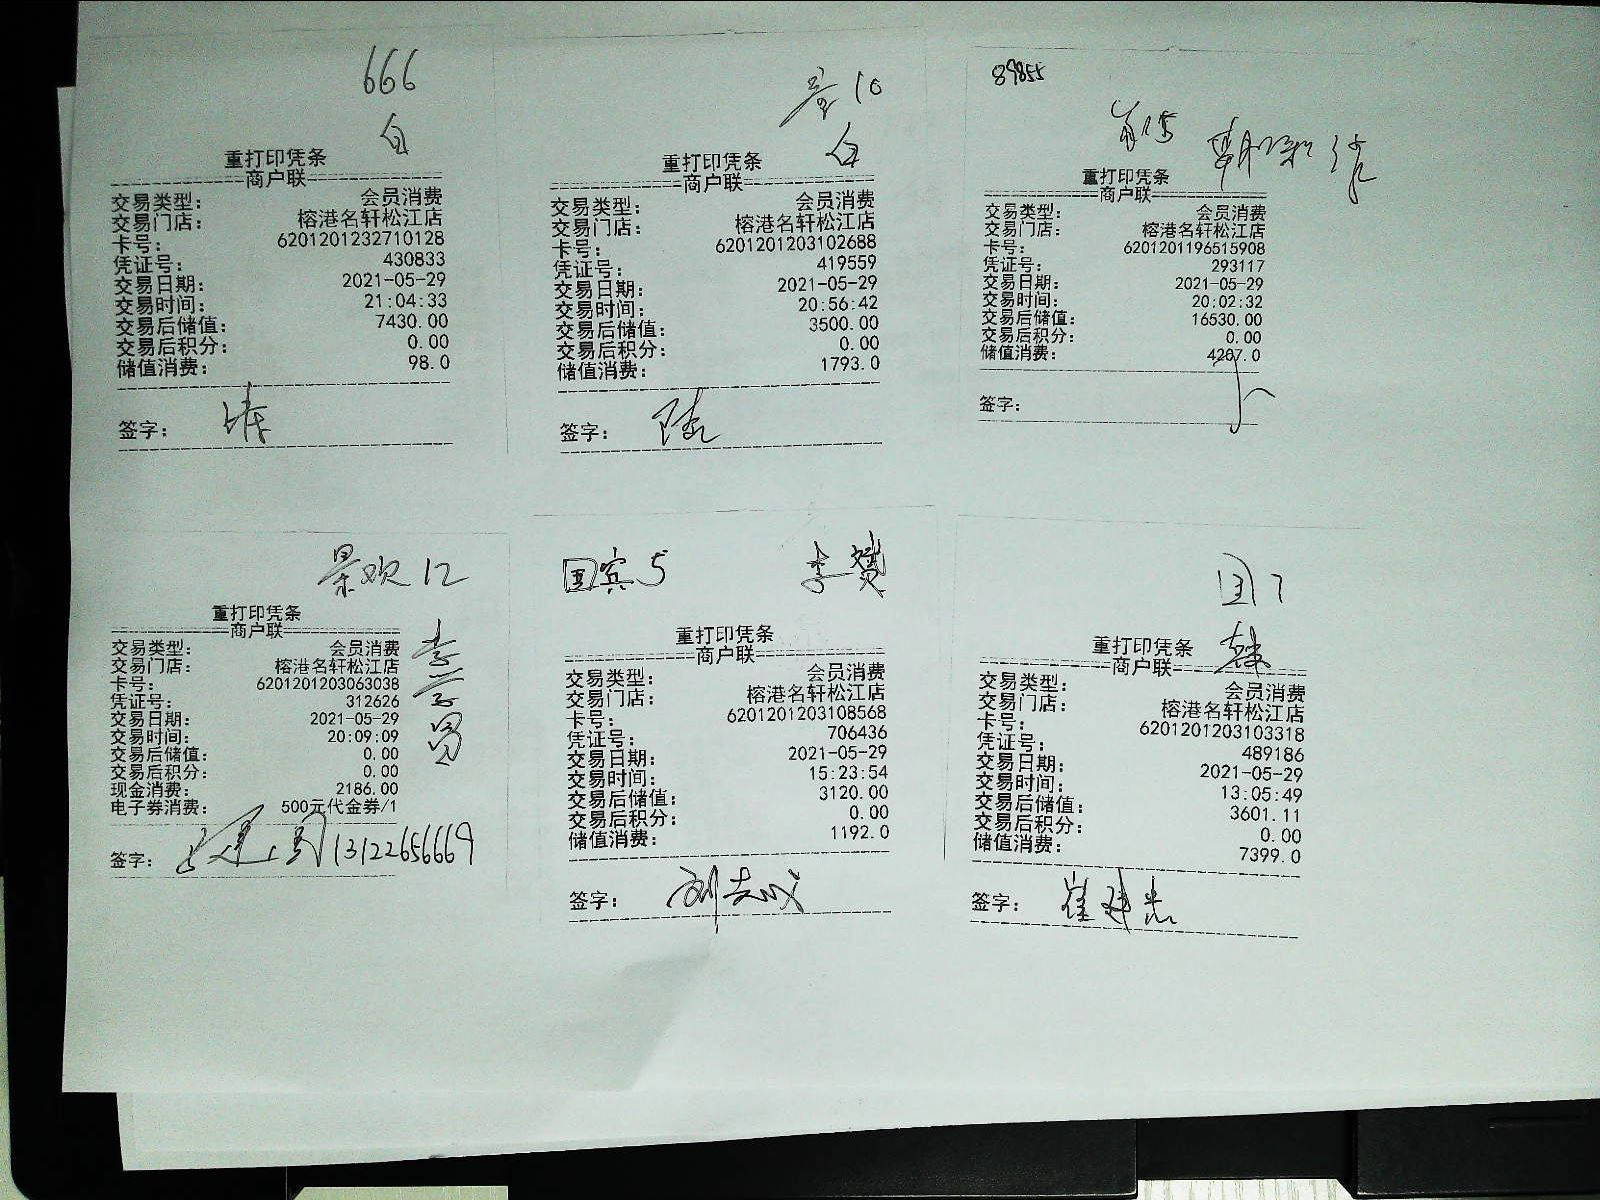 666
白
重打印凭条
商户联
交易类型: 会员消费
交易门店: 榕港名轩松江店
卡号: 6201201232710128
凭证号: 430833
交易日期: 2021-05-29
交易时间: 21:04:33
交易后储值: 7430.00
交易后积分: 0.00
储值消费: 98.0
签字:
10
白
重打印凭条
商户联
交易类型: 会员消费
交易门店: 榕港名轩松江店
卡号: 6201201203102688
凭证号: 419559
交易日期: 2021-05-29
交易时间: 20:56:42
交易后储值: 3500.00
交易后积分: 0.00
储值消费: 1793.0
签字: 陆
89855
重打印凭条
商户联
交易类型: 会员消费
交易门店: 榕港名轩松江店
卡号: 6201201196515908
凭证号: 293117
交易日期: 2021-05-29
交易时间: 20:02:32
交易后储值: 16530.00
交易后积分: 0.00
储值消费: 4207.0
签字:
景欢 12
重打印凭条
商户联
李学习
交易类型: 会员消费
交易门店: 榕港名轩松江店
卡号: 6201201203063038
凭证号: 312626
交易日期: 2021-05-29
交易时间: 20:09:09
交易后储值: 0.00
交易后积分: 0.00
现金消费: 2186.00
电子券消费: 500元代金券/1
签字: 13122656669
国宾 5 李赟
重打印凭条
商户联
交易类型: 会员消费
交易门店: 榕港名轩松江店
卡号: 6201201203108568
凭证号: 706436
交易日期: 2021-05-29
交易时间: 15:23:54
交易后储值: 3120.00
交易后积分: 0.00
储值消费: 1192.0
签字:
国 7
重打印凭条
商户联
交易类型: 会员消费
交易门店: 榕港名轩松江店
卡号: 6201201203103318
凭证号: 489186
交易日期: 2021-05-29
交易时间: 13:05:49
交易后储值: 3601.11
交易后积分: 0.00
储值消费: 7399.0
签字: 崔建忠